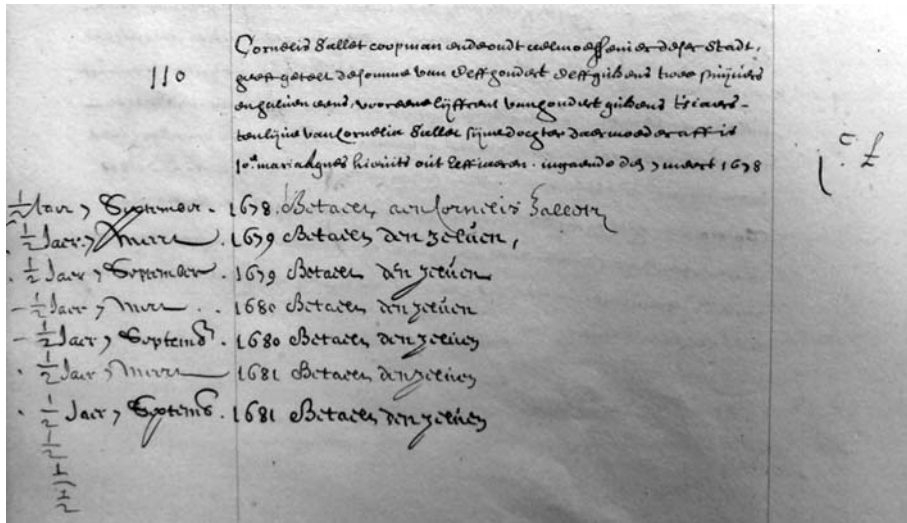 Cornelis Sallet coopman ende oudt aelmoessenier deser Stadt,
110
heeft getelt de somme van elff hondert elff guldens twee stuijvers
en halven eens, voor eene lijffrent van hondert guldens tsiaers -
ten lijve van Cornelia Sallet sijne dochter daer moeder aff is
Jo.ᵃ maria Agnes hic uits out elff iaeren . ingaende den 7 meert 1678
j c. £
½ Jaer 7 September . 1678. Betaelt aen Cornelis Sallett
½ Jaer 7 Meert . 1679 Betaelt den zelven,
. ½ Jaer 7 September . 1679 Betaelt den zelven
- ½ Jaer 7 Meert . . 1680 Betaelt den zelven
- ½ Jaer 7 Septemb . 1680 Betaelt den zelven
. ½ Jaer 7 Meert 1681 Betaelt den zelven
. ½ Jaer 7 Septemb . 1681 Betaelt den zelven
½
½
½